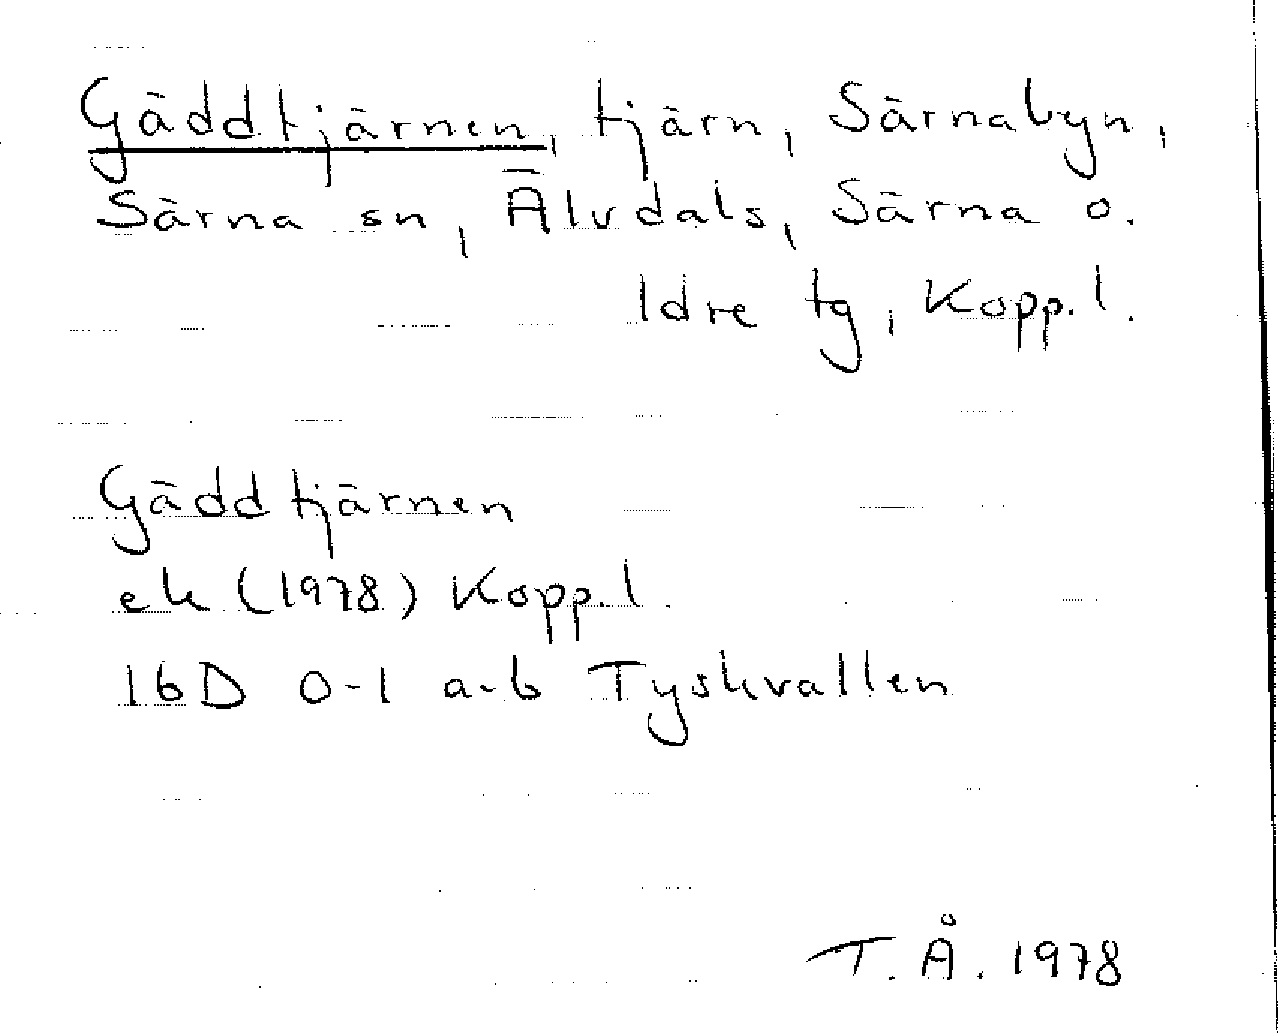 Gäddtjärnen, tjärn, Särnabyn,
Särna sn, Älvdals, Särna o.
Idre tg, Kopp.l.
Gäddtjärnen
ek (1978) Kopp.l.
16D 0-1 a-b Tyskvallen
T.Å. 1978